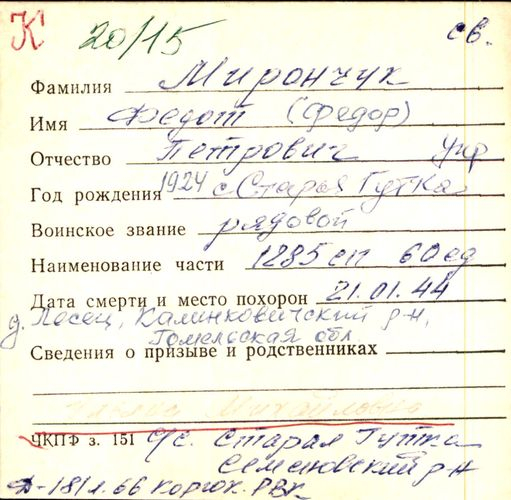 К 20/15 св.
Фамилия Мирончук
Имя Федот (Федор)
Отчество Петрович укр
Год рождения 1924 с Старая Гутка
Воинское звание рядовой
Наименование части 1285 сп 60 сд
Дата смерти и место похорон 21.01.44
д. Лесец, Калинковичский р-н,
Гомельская обл
Сведения о призыве и родственниках
Михайловна
ЧКПФ з. 151 с/с. Старая Гутка
Семеновский р-н
Д-18/1.66 Корюк. РВК